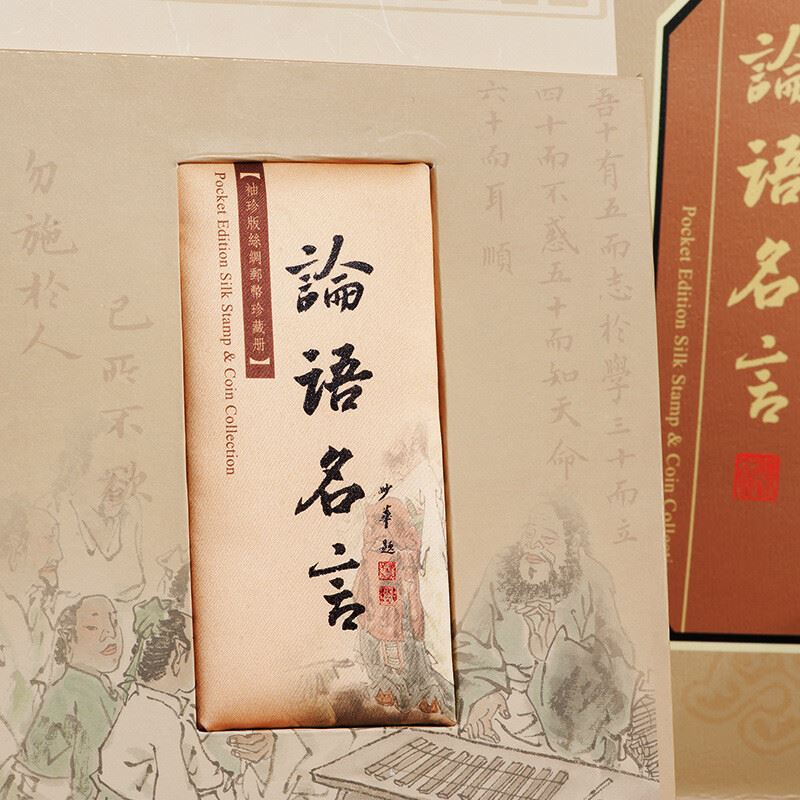 論語名言
Pocket Edition Silk Stamp & Coin Collecti
吾十有五而志於學三十而立
四十而不惑五十而知天命
六十而耳順
論語名言
【袖珍版絲綢郵幣珍藏册】
Pocket Edition Silk Stamp & Coin Collection
己所不欲
勿施於人